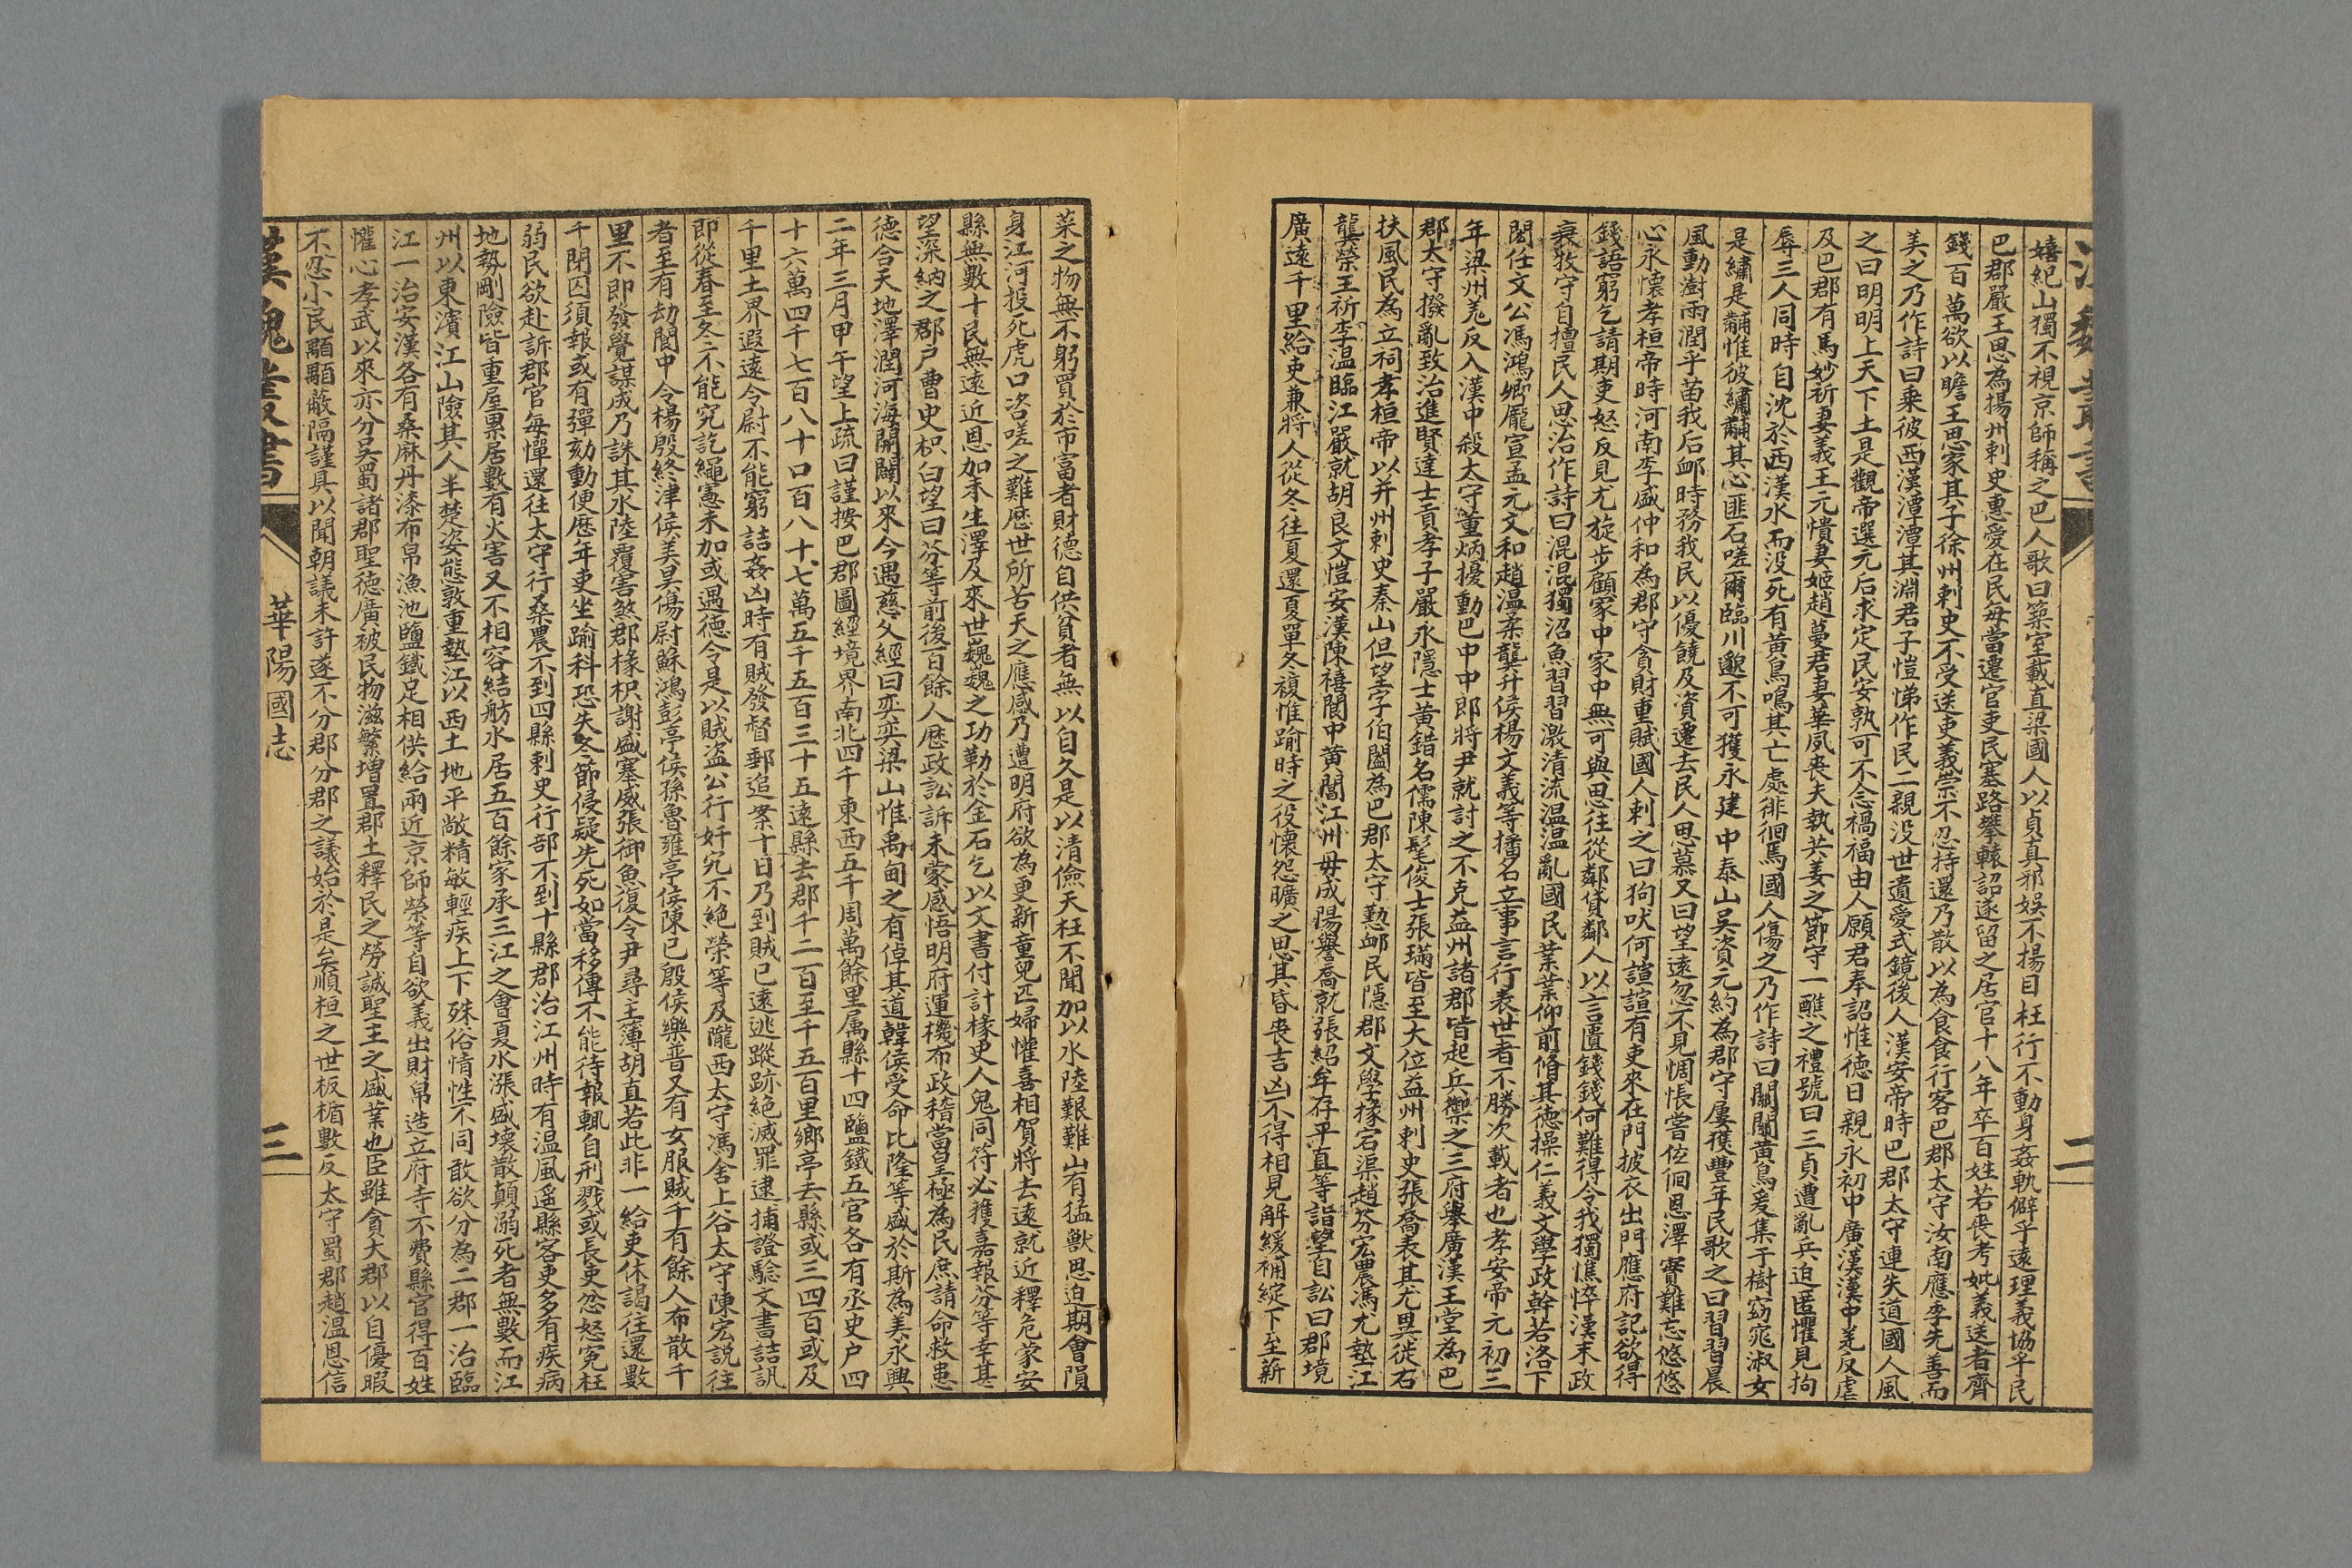 嬉紀山獨不視京師稱之巴人歌曰築室載直梁國人以貞真邪娱不揚目枉行不動身奸軌僻乎遠理義協乎民
巴郡嚴王思為揚州刺史惠愛在民每當遷官吏民塞路攀轅詔遂留之居官十八年卒百姓若喪考妣義送者齊
錢百萬欲以瞻王思家其子徐州刺史不受送吏義崇不忍持還乃散以為食食行客巴郡太守汝南應季先善而
美之乃作詩曰乗彼西漢潭潭其淵君子愷悌作民二親没世遺愛式鏡後人漢安帝時巴郡太守連失道國人風
之曰明明上天下土是觀帝選元后求定民安孰可不念禍福由人願君奉詔惟徳日親永初中廣漢漢中羌反虐
及巴郡有馬妙祈妻義王元憒妻姬趙蔓君妻華夙喪夫執共姜之節守一醮之禮號曰三貞遭亂兵迫匿懼見拘
辱三人同時自沈於西漢水而没死有黄鳥鳴其亡處徘徊焉國人傷之乃作詩曰關關黄鳥爰集于樹窈窕淑女
是繡是黼惟彼繡黼其心匪石嗟爾臨川邈不可獲永建中泰山吳資元約為郡守屢獲豐年民歌之曰習習晨
風動澍雨潤乎苗我后卹時務我民以優饒及資遷去民人思慕又曰望遠忽不見惆悵嘗佪恩澤實難忘悠悠
心永懷孝桓帝時河南李盛仲和為郡守貪財重賦國人刺之曰狗吠何諠諠有吏來在門披衣出門應府記欲得
錢語窮乞請期吏怒反見尤旋歩顧家中家中無可與思往從鄰貸鄰人以言匱錢錢何難得令我獨憔悴漢末政
衰牧守自擅民人思治作詩曰混混濁沼魚習習激清流温温亂國民業業仰前脩其徳操仁義文學政幹若洛下
閎任文公馮鴻卿龎宣孟元文和趙温柔龔升侯楊文義等播名立事言行表世者不勝次載者也孝安帝元初三
年梁州羌反入漢中殺太守董炳擾動巴中中郎將尹就討之不克益州諸郡皆起兵禦之三府舉廣漢王堂為巴
郡太守撥亂致治進賢達士貢孝子嚴永隱士黄錯名儒陳髦俊士張璊皆至大位益州刺史張喬表其尤異徙右
扶風民為立祠孝桓帝以并州刺史泰山但望字伯闔為巴郡太守懃卹民隱郡文學掾宕渠趙芬宏農馮尤墊江
龔榮王祈李温臨江嚴就胡良文愷安漢陳禧閬中黄閶江州毋成陽譽喬就張紹牟存平直等詣望自訟曰郡境
廣遠千里給吏兼將人從冬往夏還夏單冬複惟踰時之役懷怨曠之思其昏喪吉凶不得相見解緩補綻下至新
菜之物無不躬買於市富者財徳自供貧者無以自久是以清儉夭枉不聞加以水陸艱難山有猛獸思迫期會隕
身江河投死虎口咨嗟之難歴世所苦天之應感乃遭明府欲為更新童兒匹婦懽喜相賀將去遠就近釋危蒙安
縣無數十民無遠近恩加未生澤及來世巍巍之功勒於金石乞以文書付計掾史人鬼同符必獲嘉報芬等幸甚
望深納之郡户曹史枳白望曰芬等前後百餘人歴政訟訴未蒙感悟明府運機布政稽當皇極為民庶請命救患
徳合天地澤潤河海開闢以來今遇慈父經曰奕奕梁山惟禹甸之有倬其道韓侯受命比隆等盛於斯為美永興
二年三月甲午望上疏曰謹按巴郡圖經境界南北四千東西五千周萬餘里属縣十四鹽鐵五官各有丞史户四
十六萬四千七百八十口百八十七萬五千五百三十五遠縣去郡千二百至千五百里鄉亭去縣或三四百或及
千里土界遐遠令尉不能窮詰姦凶時有賊發督郵追案十日乃到賊已遠逃蹤跡絶滅罪逮捕證驗文書詰訊
即從春至冬不能究訖繩憲未加或遇徳令是以賊盗公行奸宄不絶榮等及隴西太守馮舍上谷太守陳宏説往
者至有劫閬中令楊殷終津侯美昊傷尉蘇鴻彭亭侯孫魯雍亭侯陳已殷侯樂普又有女服賊千有餘人布散千
里不即發覺謀成乃誅其水陸覆害煞郡掾枳謝盛塞威張御魚復令尹尋主簿胡直若此非一給吏休謁往還數
千閉囚須報或有彈劾動便歴年吏坐踰科恐失冬節侵疑先死如當移傳不能待報輒自刑戮或長吏忿怒寃枉
弱民欲赴訴郡官每憚還往太守行桑農不到四縣刺史行部不到十縣郡治江州時有温風遥縣客吏多有疾病
地勢剛險皆重屋累居數有火害又不相容結舫水居五百餘家承三江之會夏水漲盛壊散顛溺死者無數而江
州以東濱江山險其人半楚姿態敦重墊江以西土地平敞精敏輕疾上下殊俗情性不同敢欲分為二郡一治臨
江一治安漢各有桑麻丹漆布帛漁池鹽鐵足相供給兩近京師榮等自欲義出財帛造立府寺不費縣官得百姓
懽心孝武以來亦分吳蜀諸郡聖徳廣被民物滋繁増置郡土釋民之勞誠聖主之盛業也臣雖貪大郡以自優暇
不忍小民顒顒蔽隔謹具以聞朝議未許遂不分郡分郡之議始於是矣順桓之世板楯數反太守蜀郡趙温恩信
漢魏叢書
華陽國志
三